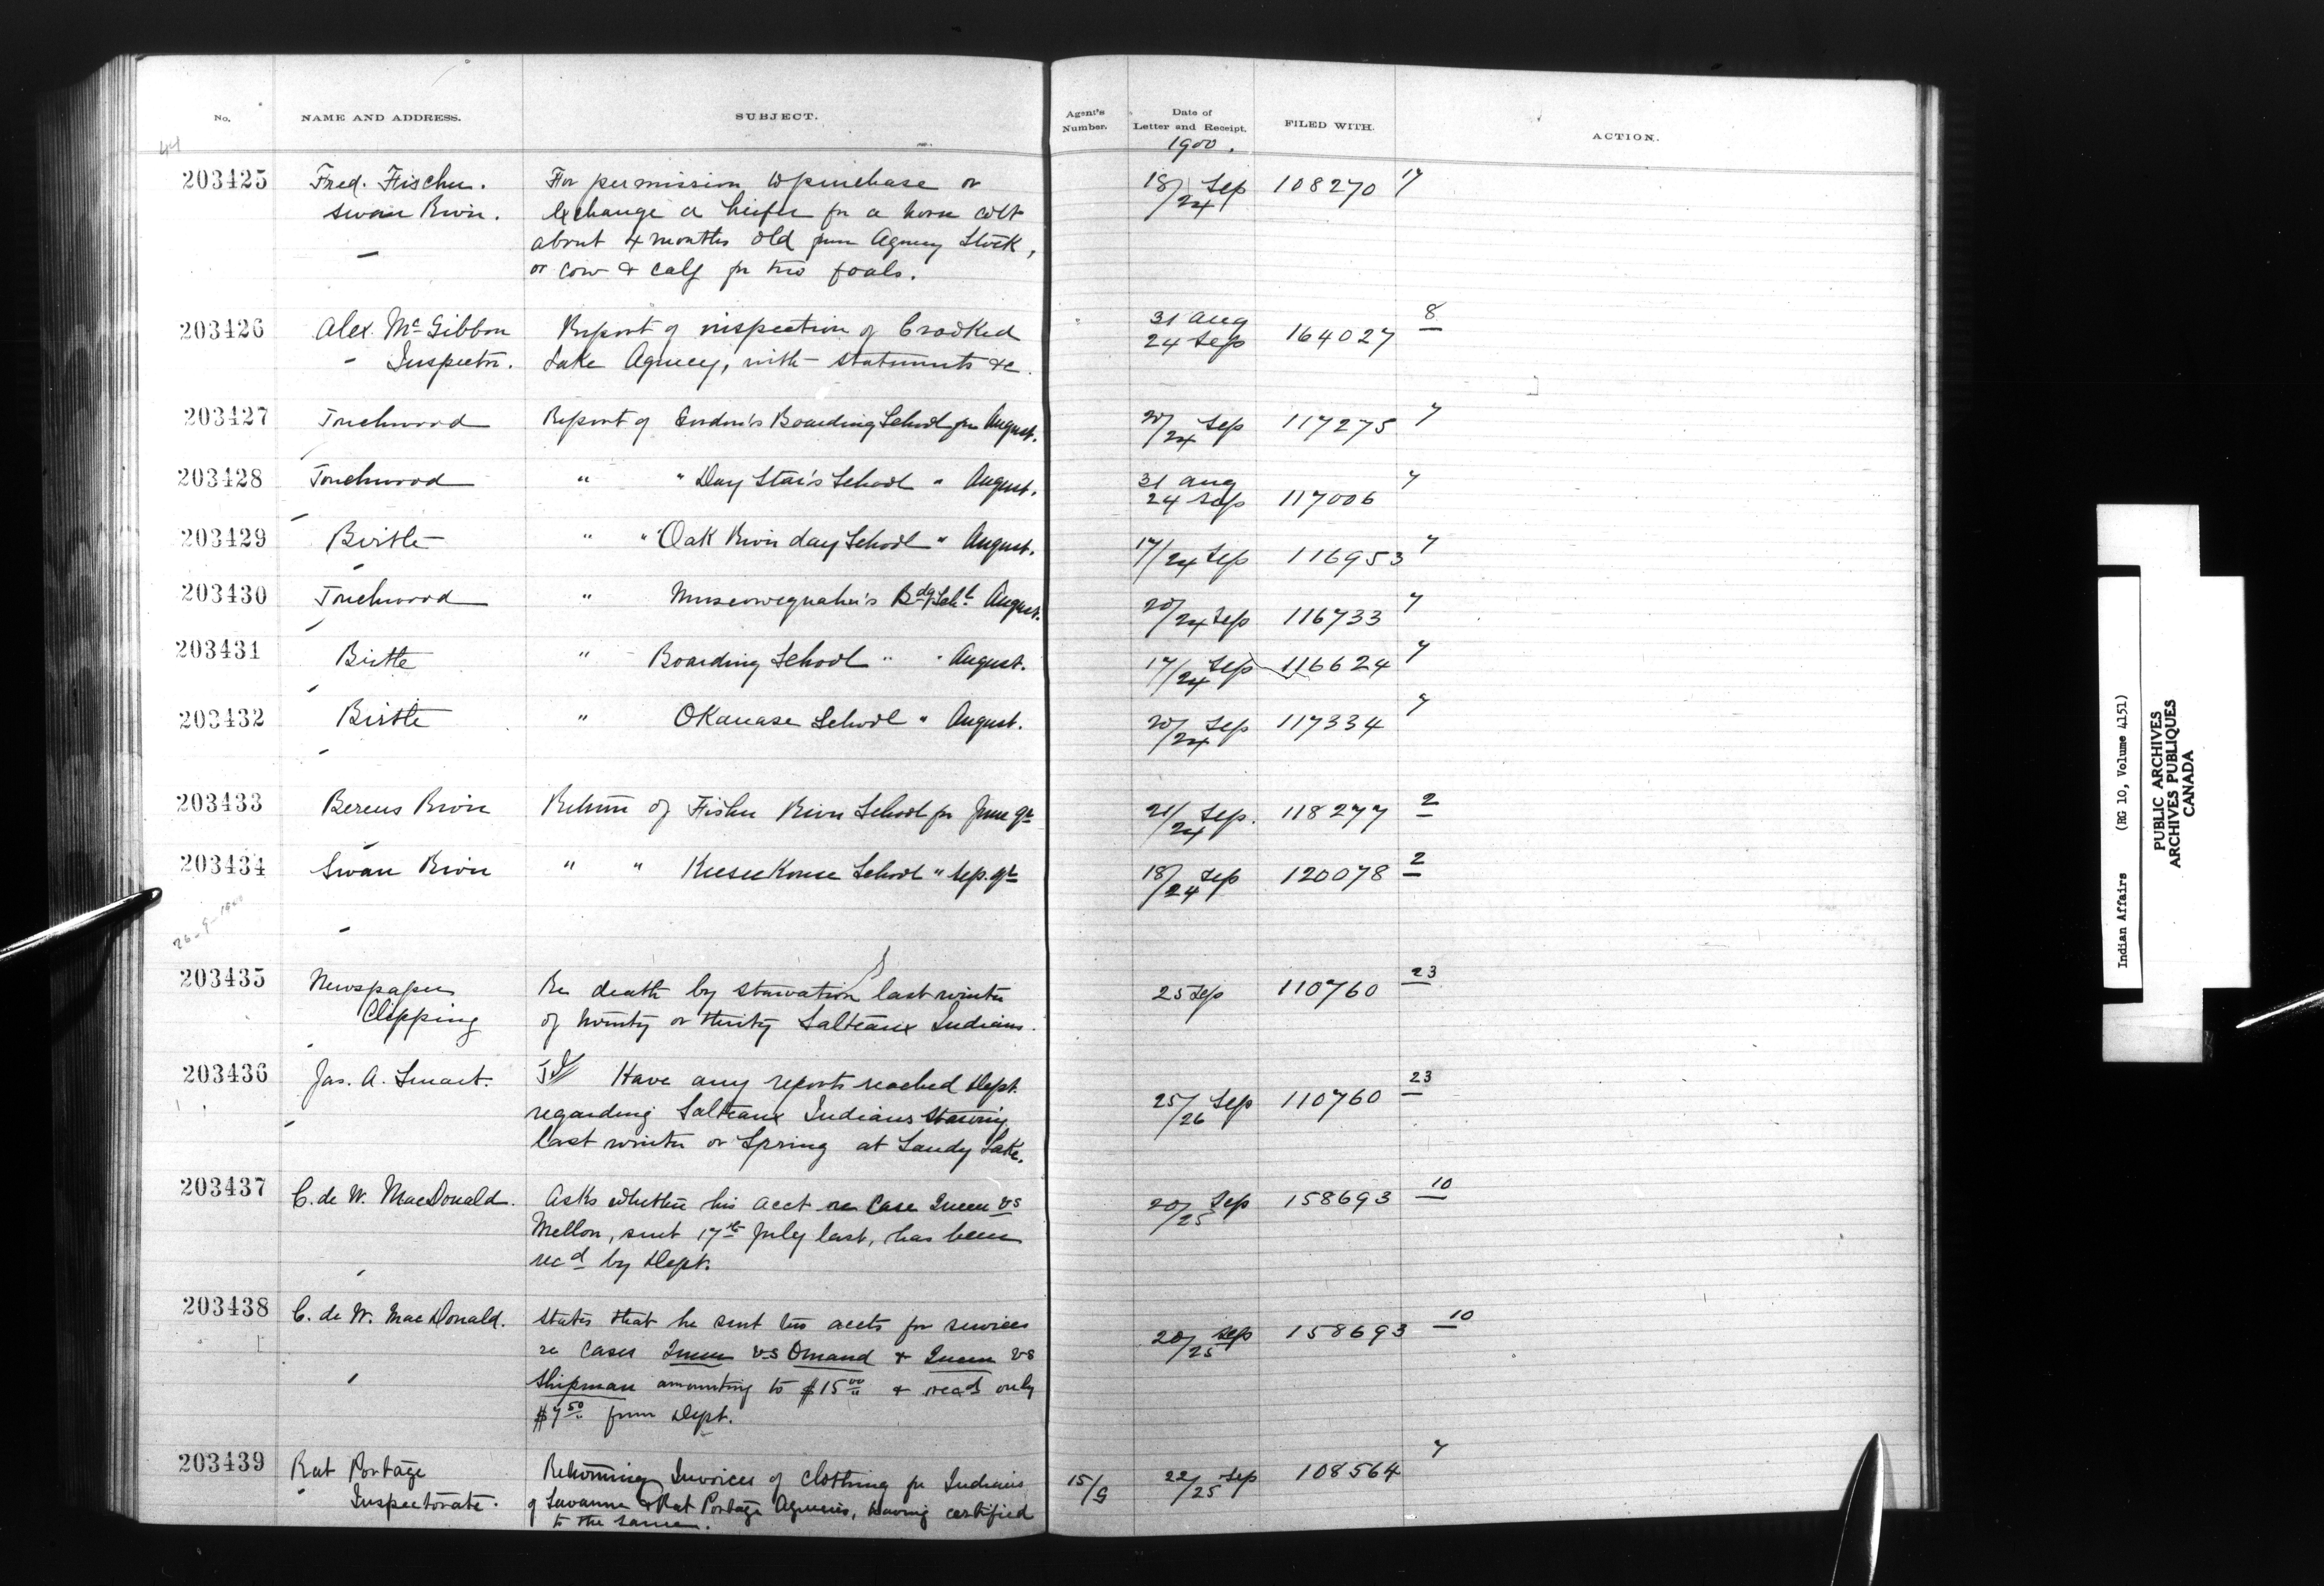 No. NAME AND ADDRESS. SUBJECT. Agent's Number. Date of Letter and Receipt. FILED WITH. ACTION.
44 1900.
203425 Fred. Fischer. For permission to purchase or 18/24 Sep 108270 17
Swan River. exchange a heifer for a horse colt
about 4 months old from Agency Stock,
or cow & calf for two foals.
203426 Alex. McGibbon Report of inspection of Crooked 31 Aug 164027 8
Inspector. Lake Agency, with statements &c. 24 Sep
203427 Touchwood Report of Gordon's Boarding School for August. 20/24 Sep 117275 7
203428 Touchwood " " Day Star's School " August. 31 Aug 24 Sep 117006 7
203429 Birtle " " Oak River day School " August. 17/24 Sep 116953 7
203430 Touchwood " Muscowequahn's Bdg Schl August. 20/24 Sep 116733 7
203431 Birtle " Boarding School " August. 17/24 Sep 116624 7
203432 Birtle " Okanase School " August. 20/24 Sep 117334 7
203433 Berens River Return of Fisher River School for June qr 21/24 Sep. 118277 2
203434 Swan River " " Keeseekouse School " Sep. qr 18/24 Sep 120078 2
26-9-1900
203435 Newspaper Re death by starvation last winter 25 Sep 110760 23
Clipping of twenty or thirty Salteaux Indians.
203436 Jas. A. Smart. Have any reports reached Dept. 25/26 Sep 110760 23
regarding Salteaux Indians starving
last winter or Spring at Sandy Lake.
203437 C. de W. MacDonald. Asks whether his acct re Case Queen vs 20/25 Sep 158693 10
Mellon, sent 17th July last, has been
recd by Dept.
203438 C. de W. MacDonald. States that he sent his accts for services 20/25 Sep 158693 10
re Cases Queen vs Omand & Queen vs
Shipman amounting to $15 00 & recd only
$7 50 from Dept.
203439 Rat Portage Returning Invoices of clothing for Indians 15/9 22/25 Sep 108564 7
Inspectorate. of Savanne & Rat Portage Agencies, having certified
to the same.
Indian Affairs (RG 10, Volume 4151)
PUBLIC ARCHIVES
ARCHIVES PUBLIQUES
CANADA